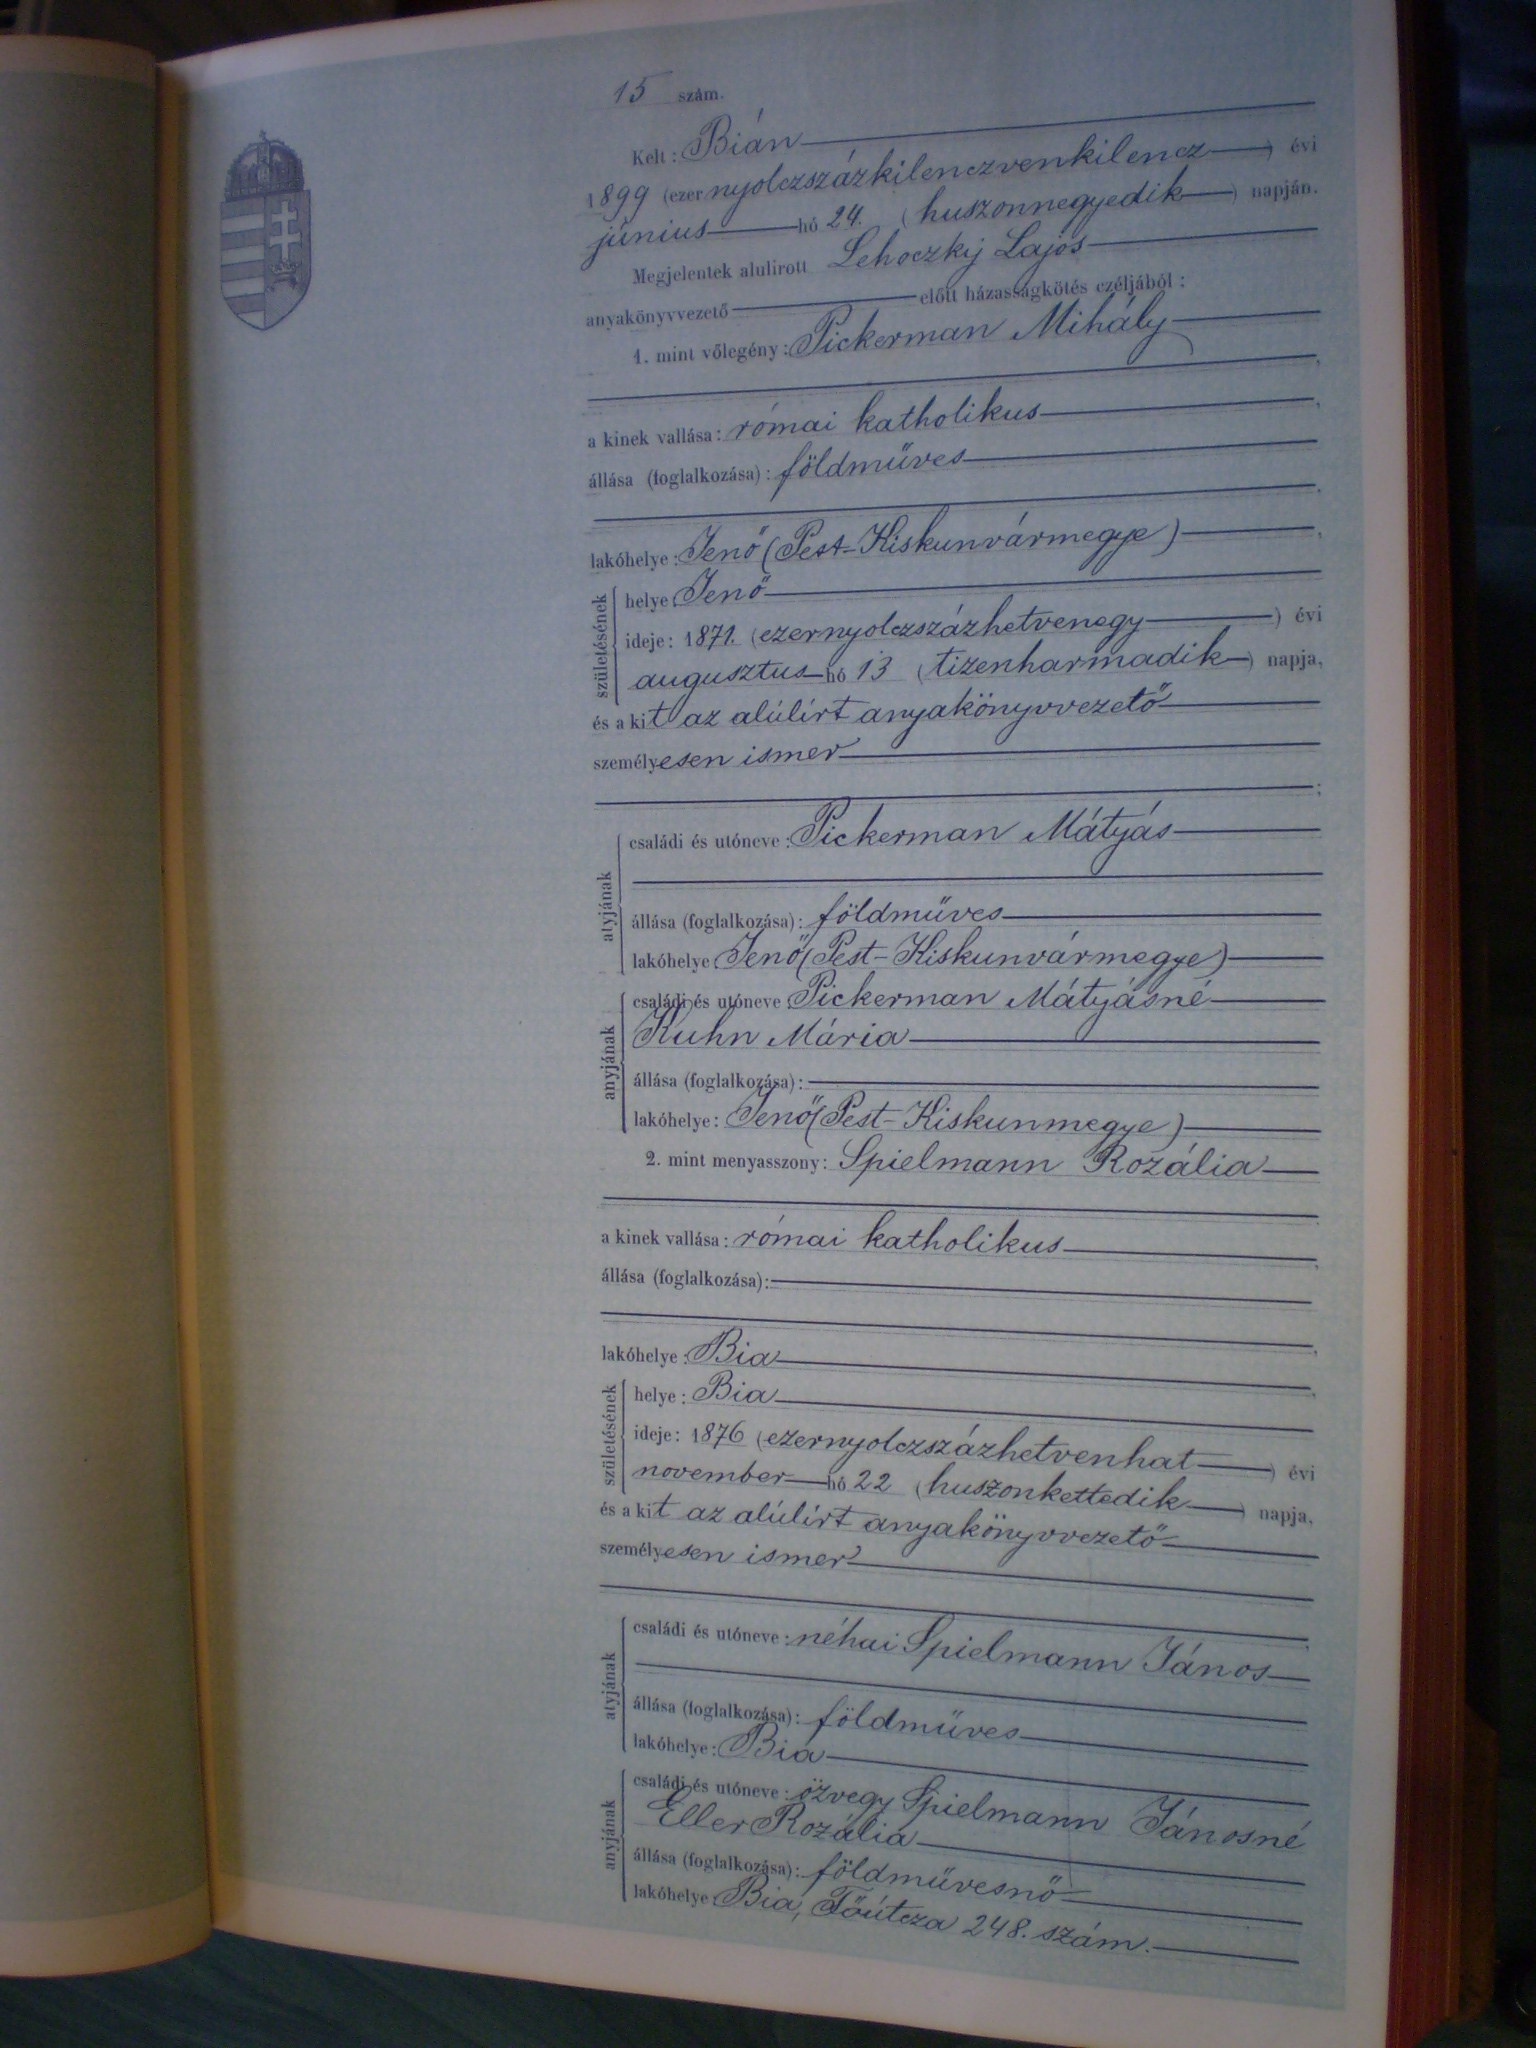 15 szám.
Kelt: Bián
1899 (ezer nyolczszázkilenczvenkilencz) évi
június hó 24. (huszonnegyedik) napján.
Megjelentek alulirott Lehoczky Lajos
anyakönyvvezető előtt házasságkötés czéljából:
1. mint vőlegény: Pickerman Mihály
,
a kinek vallása: római katholikus,
állása (foglalkozása): földműves
,
lakóhelye: Jenő (Pest-Kiskunvármegye),
születésének
helye: Jenő
ideje: 1871. (ezernyolczszázhetvenegy) évi
augusztus hó 13 (tizenharmadik) napja,
és a kit az alúlírt anyakönyvvezető
személyesen ismer
;
atyjának
családi és utóneve: Pickerman Mátyás
állása (foglalkozása): földműves
lakóhelye Jenő (Pest-Kiskunvármegye)
anyjának
családi és utóneve Pickerman Mátyásné
Kuhn Mária
állása (foglalkozása):
lakóhelye: Jenő (Pest-Kiskunmegye)
2. mint menyasszony: Spielmann Rozália
,
a kinek vallása: római katholikus,
állása (foglalkozása):
,
lakóhelye: Bia,
születésének
helye: Bia
ideje: 1876 (ezernyolczszázhetvenhat) évi
november hó 22 (huszonkettedik) napja,
és a kit az alúlírt anyakönyvvezető
személyesen ismer
atyjának
családi és utóneve: néhai Spielmann János
állása (foglalkozása): földműves
lakóhelye: Bia
anyjának
családi és utóneve: özvegy Spielmann Jánosné
Eller Rozália
állása (foglalkozása): földművesnő
lakóhelye Bia, Főútcza 248. szám.